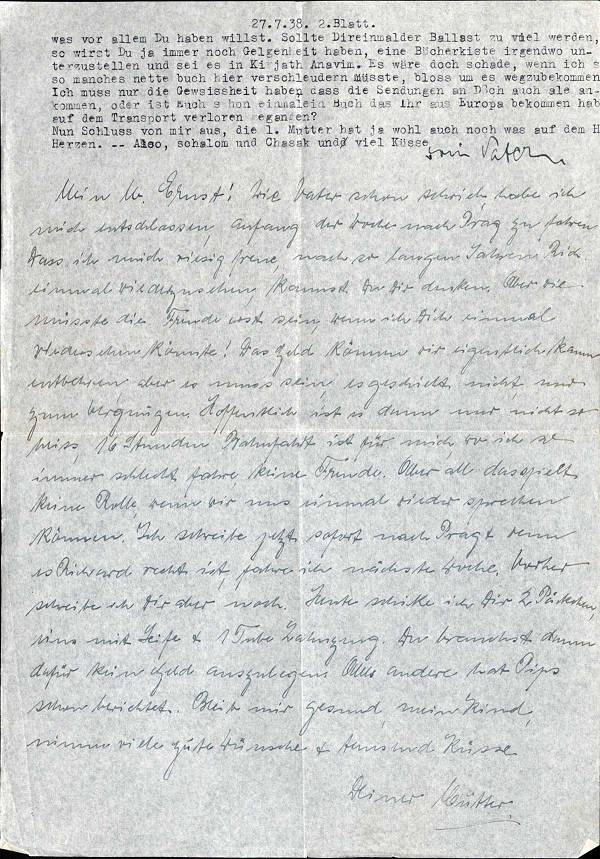 27.7.38. 2.Blatt.
was vor allem Du haben willst. Sollte Direinmalder Ballast zu viel werden,
so wirst Du ja immer noch Gelgenheit haben, eine Bücherkiste irgendwo un-
terzustellen und sei es in Kirjath Anavim. Es wäre doch schade, wenn ich s
so manches nette buch hier verschleudern müsste, bloss um es wegzubekommen
Ich muss nur die Gewissheit haben dass die Sendungen an Dich auch ale an-
kommen, oder ist Euch schon einmalein Buch das Ihr aus Europa bekommen hab
auf dem Transport verloren gegangen?
Nun Schluss von mir aus, die l. Mutter hat ja wohl auch noch was auf dem H
Herzen. -- Also, schalom und Chasak und viel Küsse
Dein Vater
Mein l. Ernst! Wie Vater schon schrieb, habe ich
mich entschlossen, anfang der Woche nach Prag zu fahren
Dass ich mich riesig freue, nach so langen Jahren Rich
einmal wiederzusehen, kannst Du Dir denken. Aber wie
müsste die Freude erst sein, wenn ich Dich einmal
wiedersehen könnte! Das Geld können wir eigentlich kaum
entbehren aber es muss sein, es geschieht nicht nur
zum Vergnügen. Hoffentlich ist es dann nur nicht so
heiss, 16 Stunden Bahnfahrt ist für mich, wo ich so
immer schlecht fahre keine Freude. Aber all das spielt
keine Rolle, wenn wir uns einmal wieder sprechen
können. Ich schreibe jetzt sofort nach Prag & wenn
es Richard recht ist, fahre ich nächste Woche. Vorher
schreibe ich Dir aber noch. Heute schicke ich Dir 2 Päckchen,
eins mit Seife & 1 Tube Zahnpng. Du brauchst dann
dafür kein Geld auszugeben. Alles andere hat Pips
schon berichtet. Bleib mir gesund, mein Kind,
nimm viele gute Wünsche & tausend Küsse
Deiner Mutter.